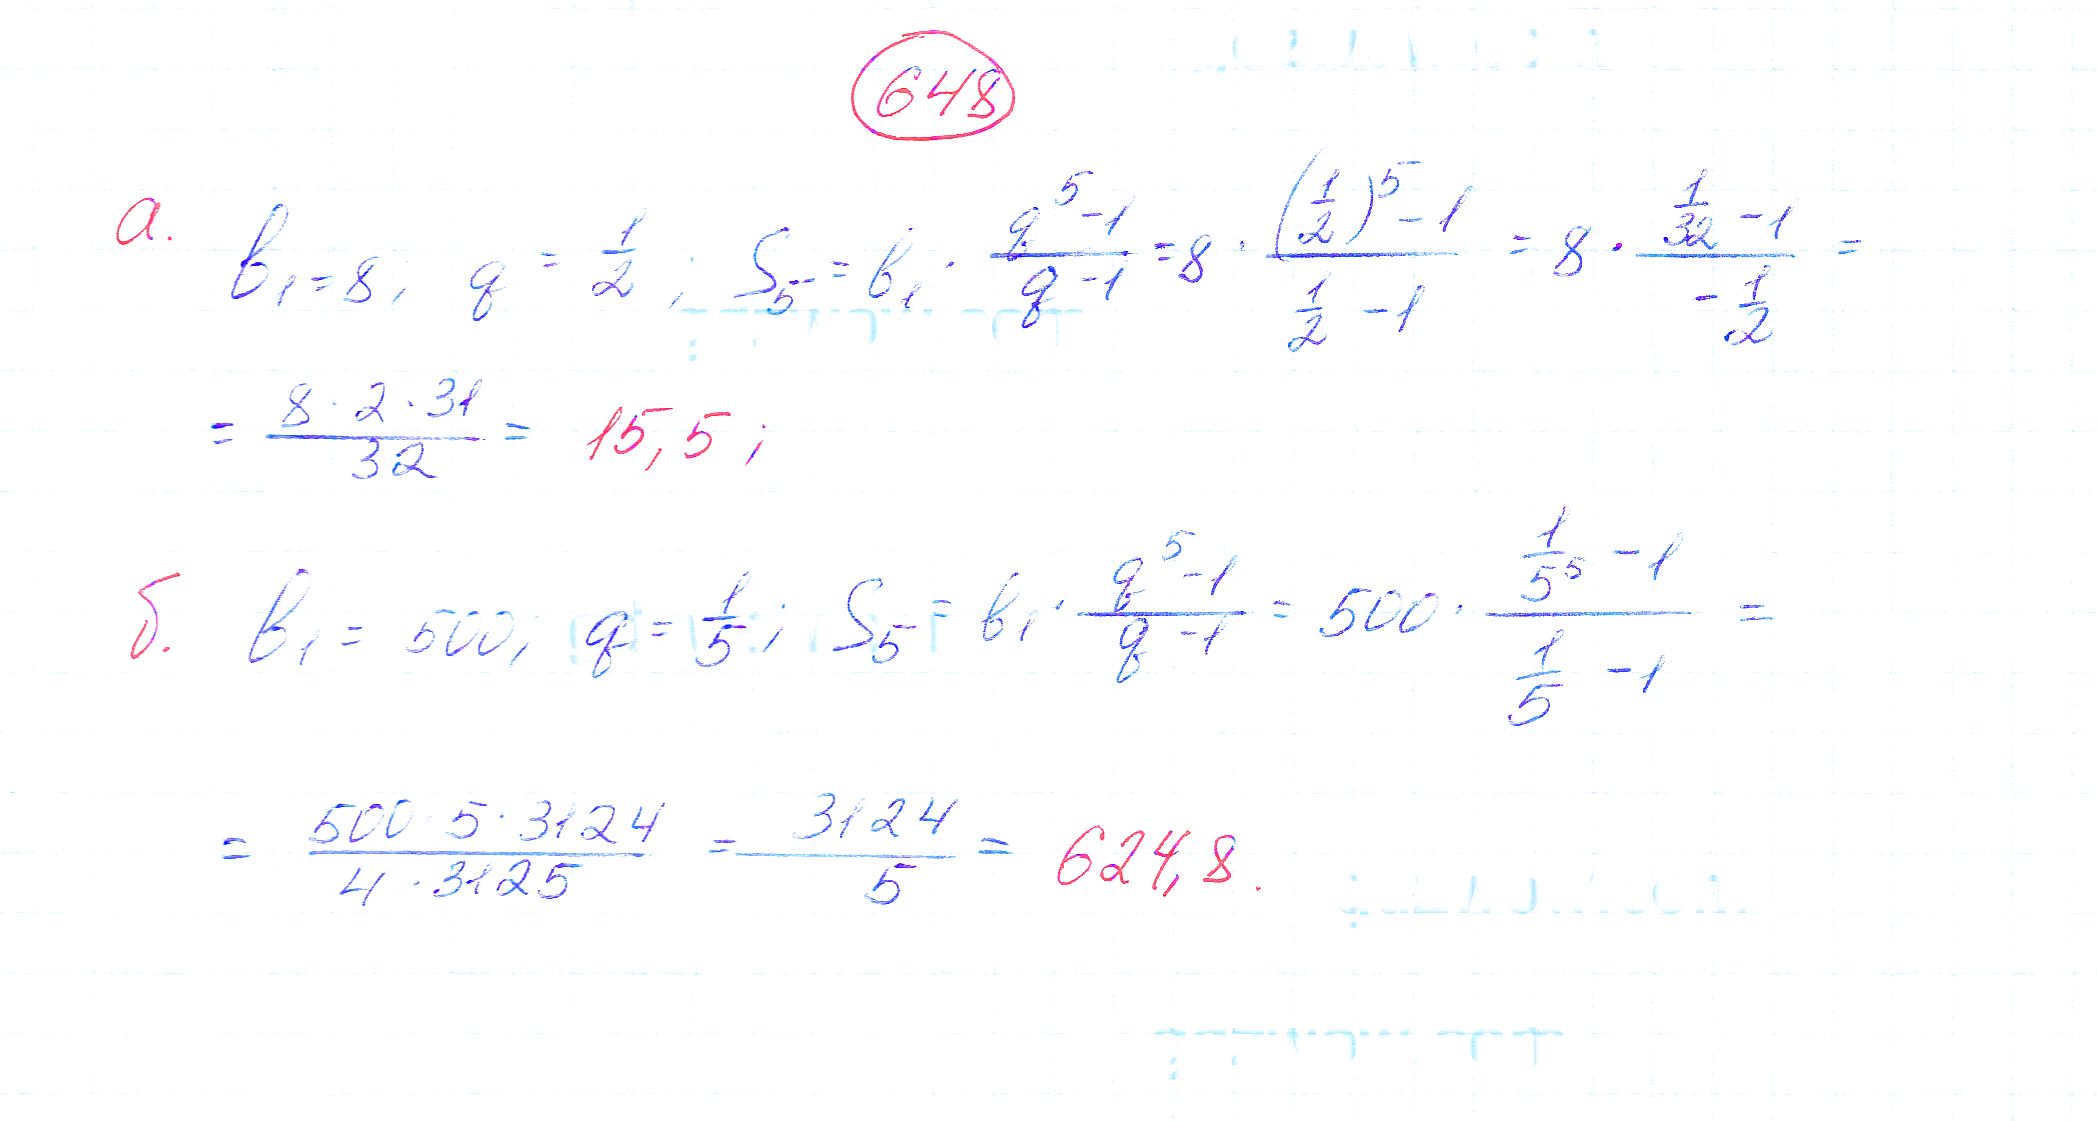 648
а. b₁ = 8; q = 1/2; S₅ = b₁ · (q⁵ - 1)/(q - 1) = 8 · ((1/2)⁵ - 1)/(1/2 - 1) = 8 · (1/32 - 1)/(-1/2) =
= (8 · 2 · 31)/32 = 15,5;
б. b₁ = 500; q = 1/5; S₅ = b₁ · (q⁵ - 1)/(q - 1) = 500 · (1/5⁵ - 1)/(1/5 - 1) =
= (500 · 5 · 3124)/(4 · 3125) = 3124/5 = 624,8.